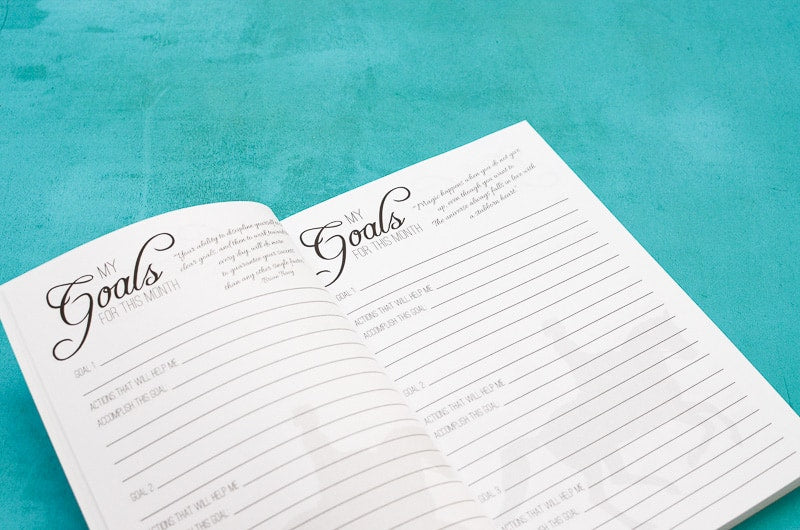 MY
Goals
FOR THIS MONTH
"Your ability to discipline yourself to set
clear goals, and then to work towards them
every day, will do more
to guarantee your success
than any other single factor."
Brian Tracy
GOAL 1
ACTIONS THAT WILL HELP ME
ACCOMPLISH THIS GOAL
GOAL 2
ACTIONS THAT WILL HELP ME
ACCOMPLISH THIS GOAL
MY
Goals
FOR THIS MONTH
"Magic happens when you do not give
up, even though you want to.
The universe always falls in love with
a stubborn heart."
GOAL 1
ACTIONS THAT WILL HELP ME
ACCOMPLISH THIS GOAL
GOAL 2
ACTIONS THAT WILL HELP ME
ACCOMPLISH THIS GOAL
GOAL 3
ACTIONS THAT WILL HELP ME
ACCOMPLISH THIS GOAL